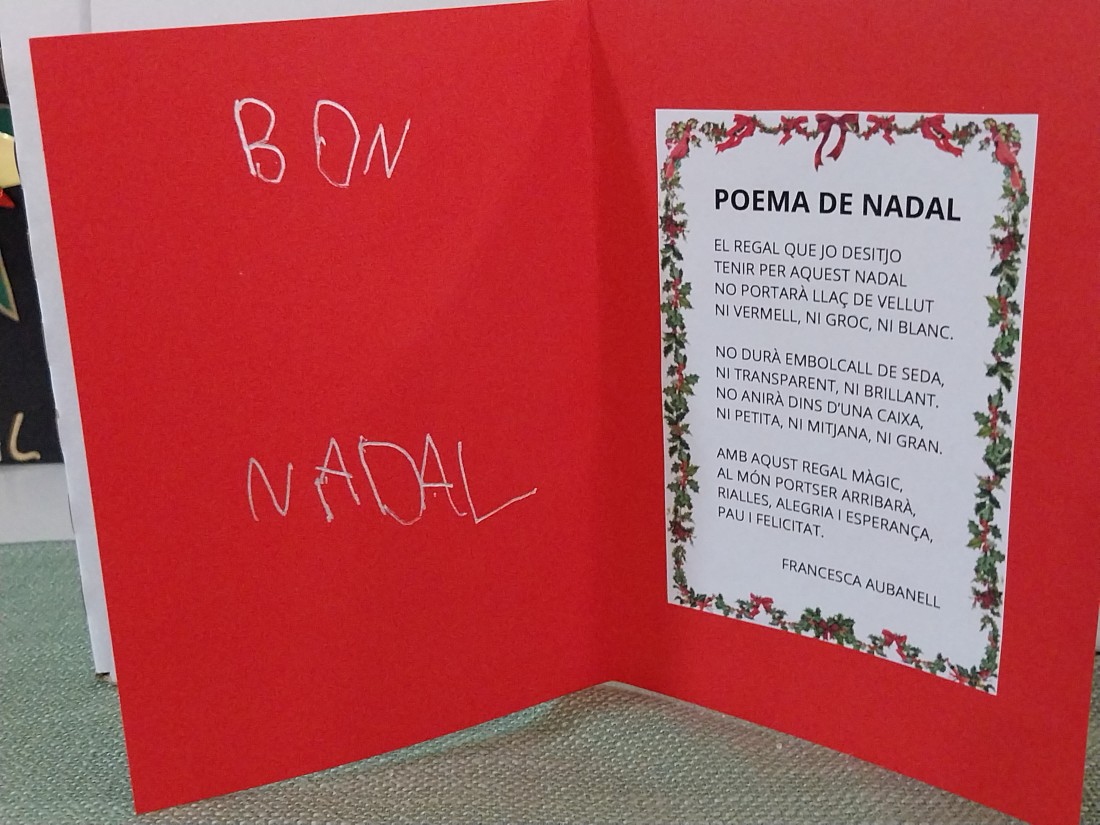 BON
NADAL
POEMA DE NADAL
EL REGAL QUE JO DESITJO
TENIR PER AQUEST NADAL
NO PORTARÀ LLAÇ DE VELLUT
NI VERMELL, NI GROC, NI BLANC.
NO DURÀ EMBOLCALL DE SEDA,
NI TRANSPARENT, NI BRILLANT.
NO ANIRÀ DINS D'UNA CAIXA,
NI PETITA, NI MITJANA, NI GRAN.
AMB AQUST REGAL MÀGIC,
AL MÓN PORTSER ARRIBARÀ,
RIALLES, ALEGRIA I ESPERANÇA,
PAU I FELICITAT.
FRANCESCA AUBANELL